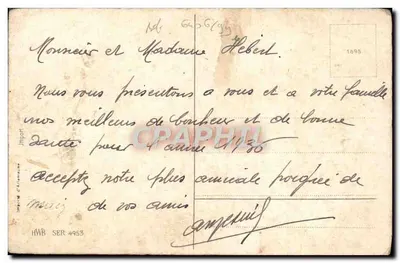 Monsieur et Madame Hébert.
Nous vous présentons a vous et a votre famille
nos meilleurs de bonheur et de bonne
santé pour l'année 1936
acceptez notre plus amicale poignée de
de vos amis
HWB SER 4953
1695
CPARAMA